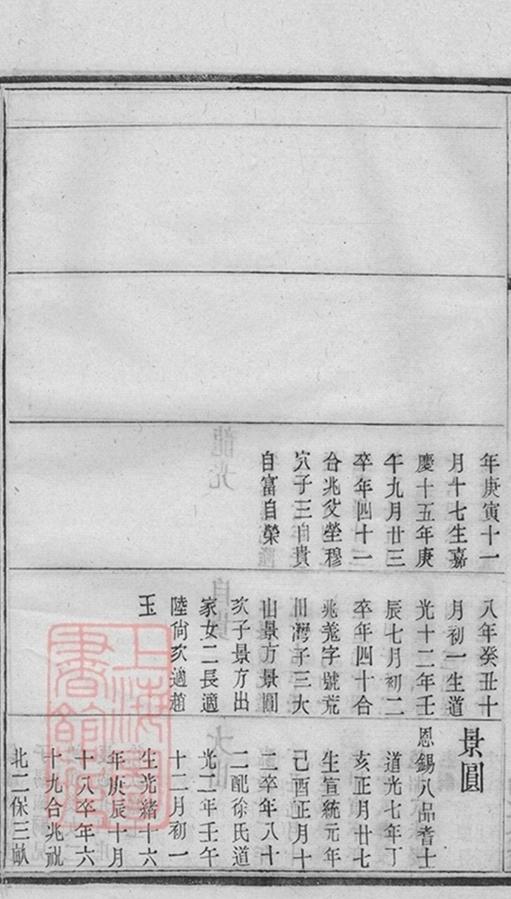 年庚寅十一
月十七生嘉
慶十五年庚
午九月廿三
卒年四十一
合兆父塋穆
穴子三自貴
自富自榮
八年癸丑十
月初一生道
光十二年壬
辰七月初二
卒年四十合
兆羗字號荒
田灣子三大
山景方景圓
次子景方出
家女二長適
陸尙次適趙
玉
景圓
恩錫八品耆士
道光七年丁
亥正月廿七
生宣統元年
己酉正月十
二卒年八十
二配徐氏道
光二年壬午
十二月初一
生光緒十六
年庚辰十月
十八卒年六
十九合兆祝
北二保三畝
上海圖書館藏